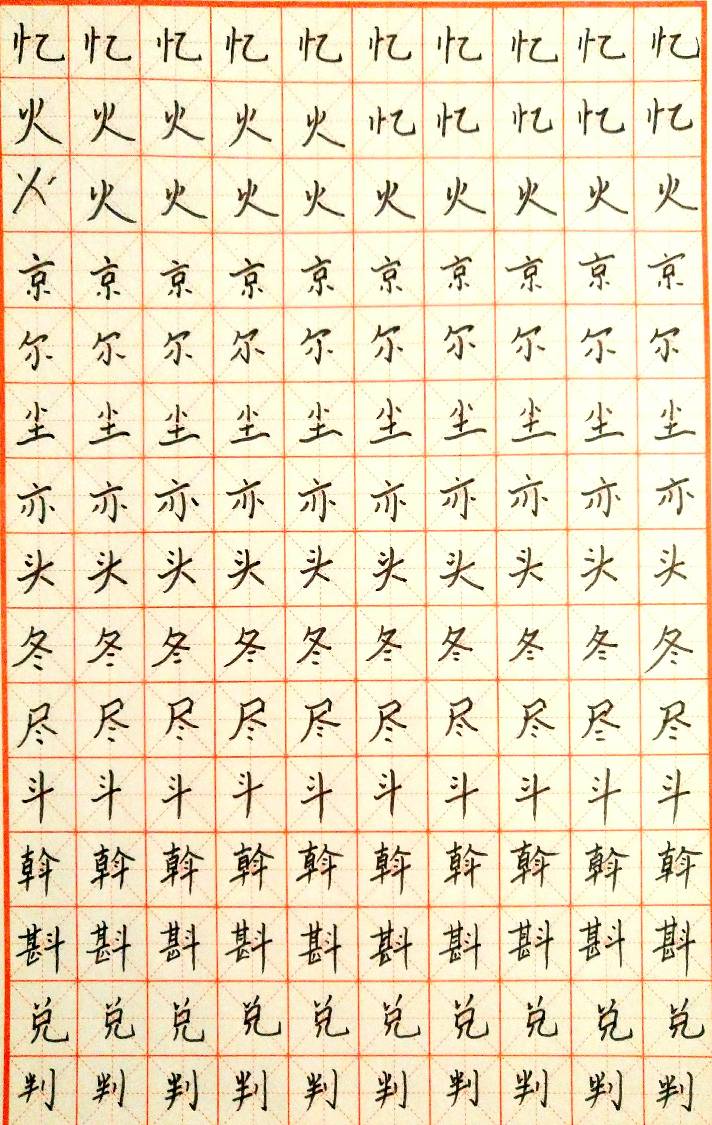 忆忆忆忆忆忆忆忆忆忆
火火火火火忆忆忆忆忆
火火火火火火火火火火
京京京京京京京京京京
尔尔尔尔尔尔尔尔尔尔
尘尘尘尘尘尘尘尘尘尘
亦亦亦亦亦亦亦亦亦亦
头头头头头头头头头头
冬冬冬冬冬冬冬冬冬冬
尽尽尽尽尽尽尽尽尽尽
斗斗斗斗斗斗斗斗斗斗
斡斡斡斡斡斡斡斡斡斡
斟斟斟斟斟斟斟斟斟斟
兑兑兑兑兑兑兑兑兑兑
判判判判判判判判判判